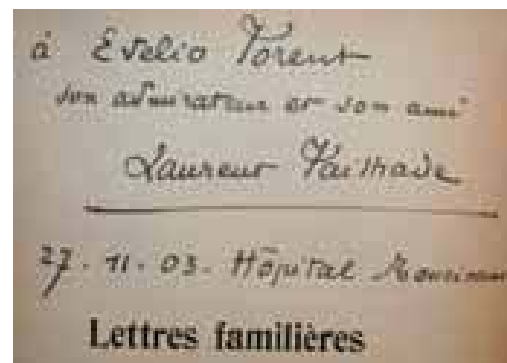 à Evelio Torent
son admirateur et son ami
Laurent Tailhade
27 - 11 - 03 - Hôpital
Lettres familières